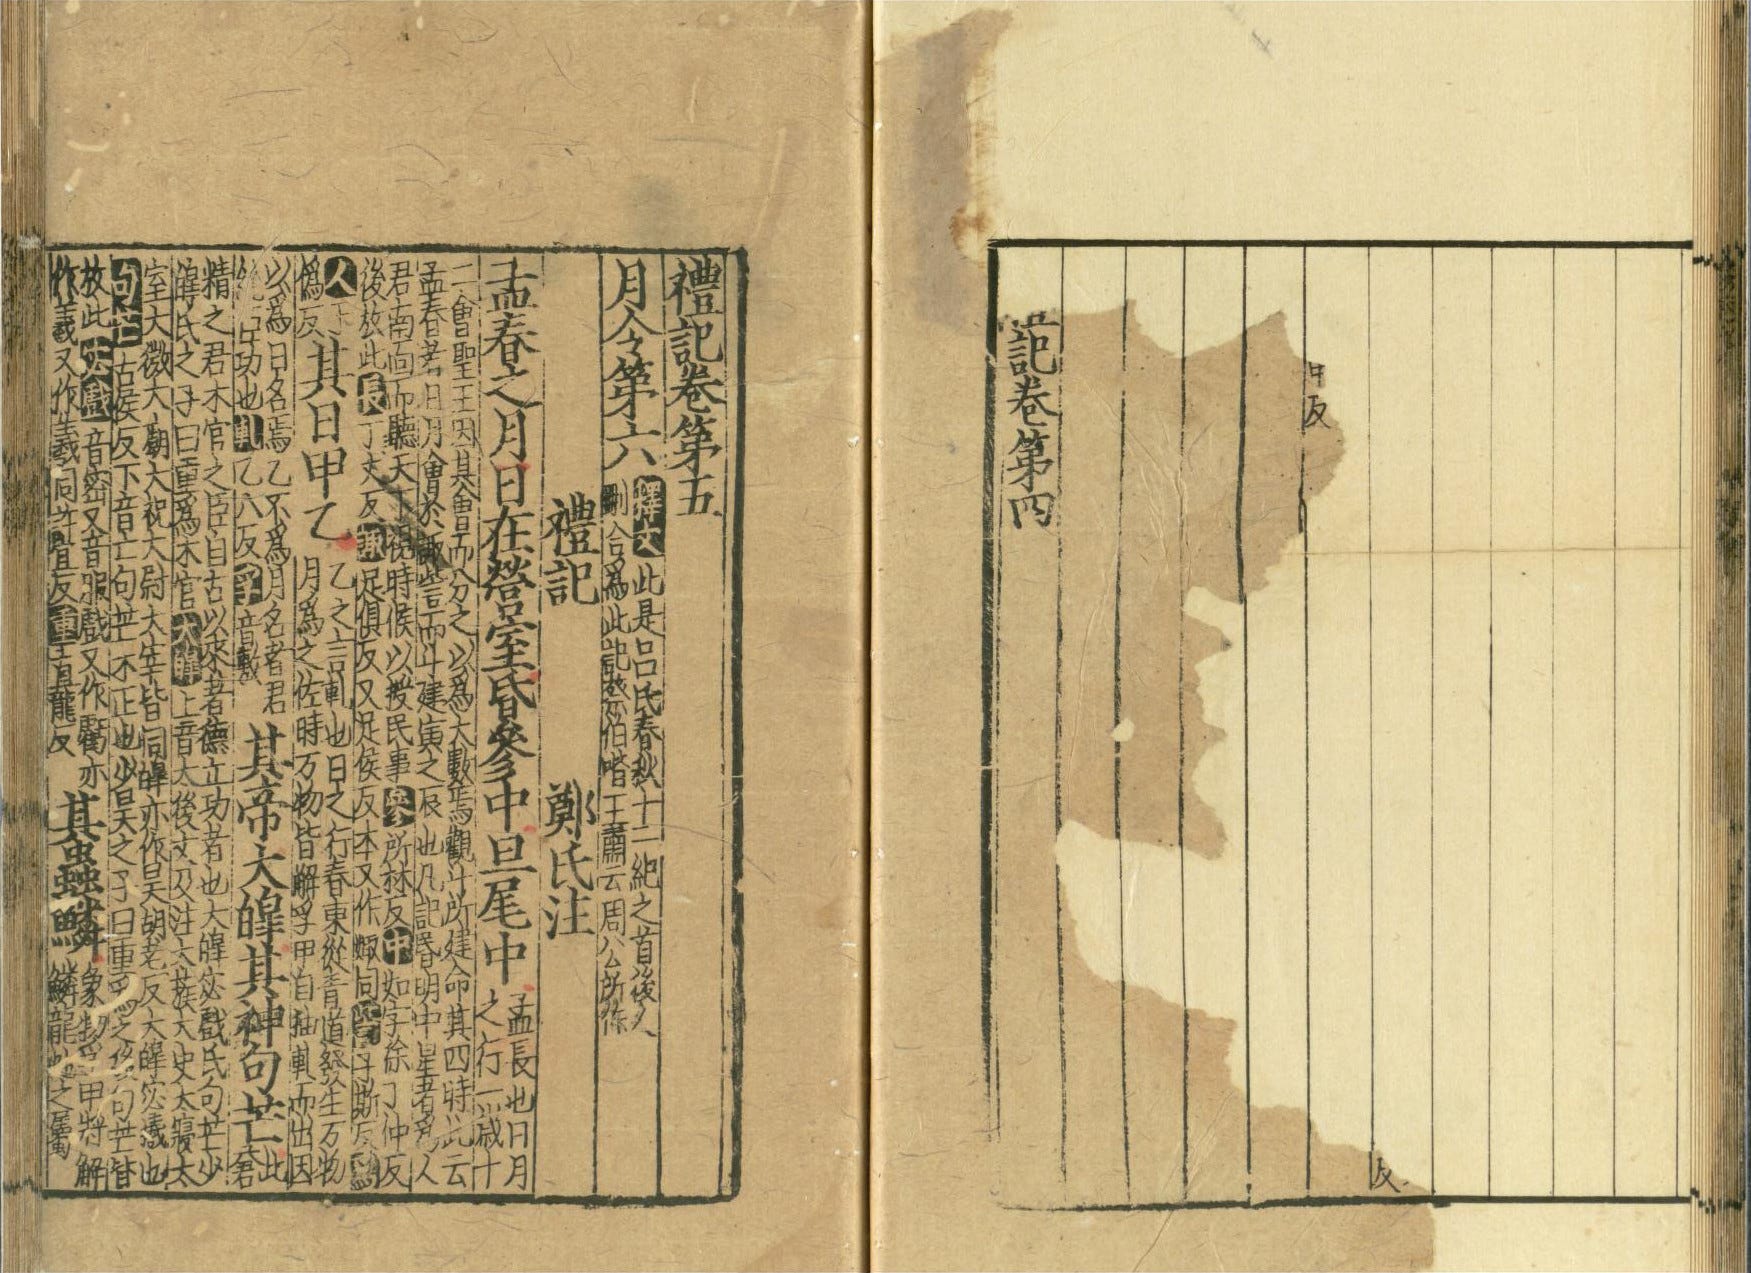 中反
反
記卷第四
禮記卷第五
月令第六 釋文此是呂氏春秋十二紀之首後人
刪合爲此記蔡伯喈王肅云周公所作
禮記 鄭氏注
孟春之月日在營室昏參中旦尾中 孟長也日月
之行一歲十
二會聖王因其會而分之以爲大數焉觀斗所建命其四時此云
孟春者日月會於諏訾而斗建寅之辰也凡記昏明中星者爲人
君南面而聽天下視時候以授民事參所林反中如字徐丁仲反
後放此長丁丈反諏足俱反又足侯反本又作娵同訾子斯反爲
人
僞反
其日甲乙 乙之言軋也日之行春東從青道發生万物
月爲之佐時万物皆解孚甲自抽軋而出因
以爲日名焉乙不爲月名者君
統臣功也軋乙八反孚音敷
其帝大皡其神句芒 此
蒼
精之君木官之臣自古以來著德立功者也大皡宓戲氏句芒少
皡氏之子曰重爲木官大皡上音太後文及注大蔟大史大寢太
室大微大廟大祝大尉大宰皆同皡亦作昊胡老反大皡宓羲也
句芒古侯反下音亡句芒木正也少昊之子曰重爲之後句芒皆
放此宓戲音密又音服戲又作虧亦
作羲又作羲同許宜反重直龍反
其蟲鱗 象物孚甲將解
鱗龍蛇之屬